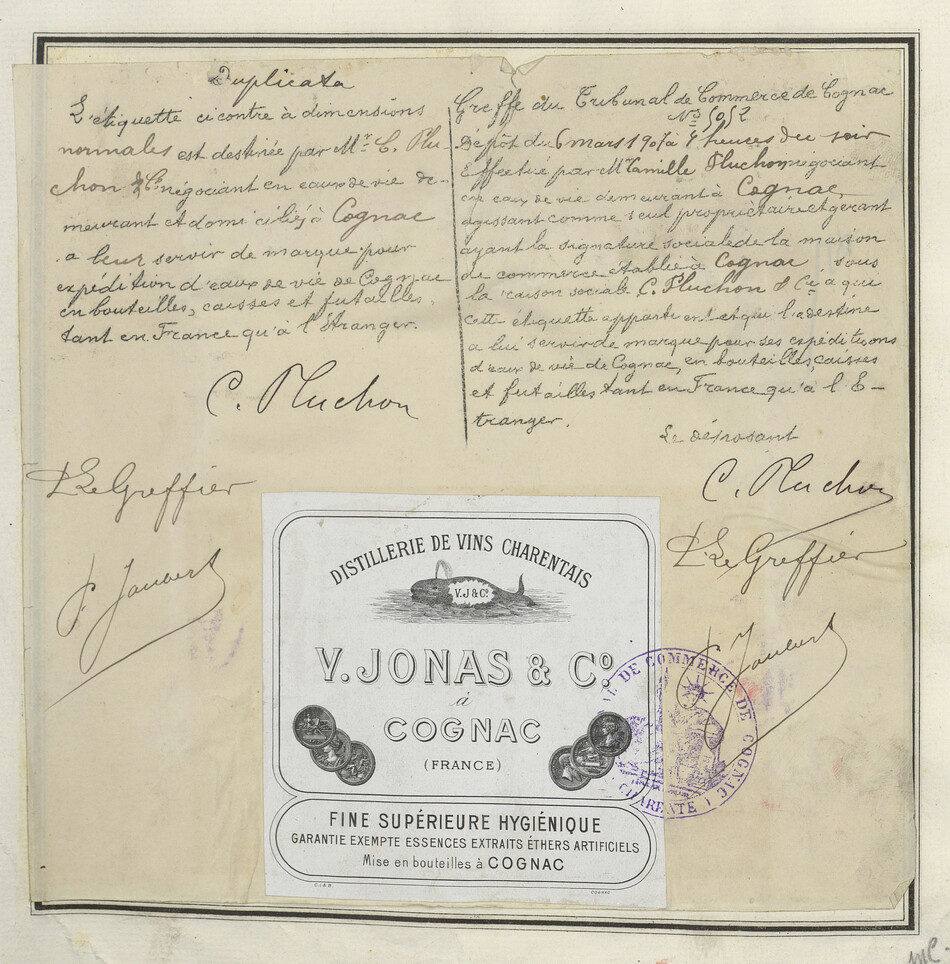 Duplicata
L'étiquette ci contre à dimensions
normales est destinée par Mr. C. Plu-
chon & Cie négociant en eaux de vie de-
meurant et domiciliés à Cognac
a leur servir de marque pour
expédition d'eaux de vie de Cognac
en bouteilles, caisses et futailles,
tant en France qu'à l'Étranger.
C. Pluchon
P. Le Greffier
Greffe du Tribunal de Commerce de Cognac
No 5052
Dépôt du 6 mars 1907 à 4 heures du soir
Effectué par Mr Camille Pluchon négociant
en eaux de vie demeurant à Cognac,
agissant comme seul propriétaire et gérant
ayant la signature sociale de la maison
de commerce établie à Cognac sous
la raison sociale C. Pluchon & Cie à qui
cette étiquette appartient et qui l'a destine
a lui servir de marque pour ses expéditions
d'eaux de vie de Cognac, en bouteilles, caisses
et futailles tant en France qu'à l'E-
tranger.
Le déposant
C. Pluchon
P. Le Greffier
DISTILLERIE DE VINS CHARENTAIS
V.J & Co.
V. JONAS & Co.
à
COGNAC
(FRANCE)
FINE SUPÉRIEURE HYGIÉNIQUE
GARANTIE EXEMPTE ESSENCES EXTRAITS ÉTHERS ARTIFICIELS
Mise en bouteilles à COGNAC
COGNAC
AL DE COMMERCE DE COGNAC
CHARENTE